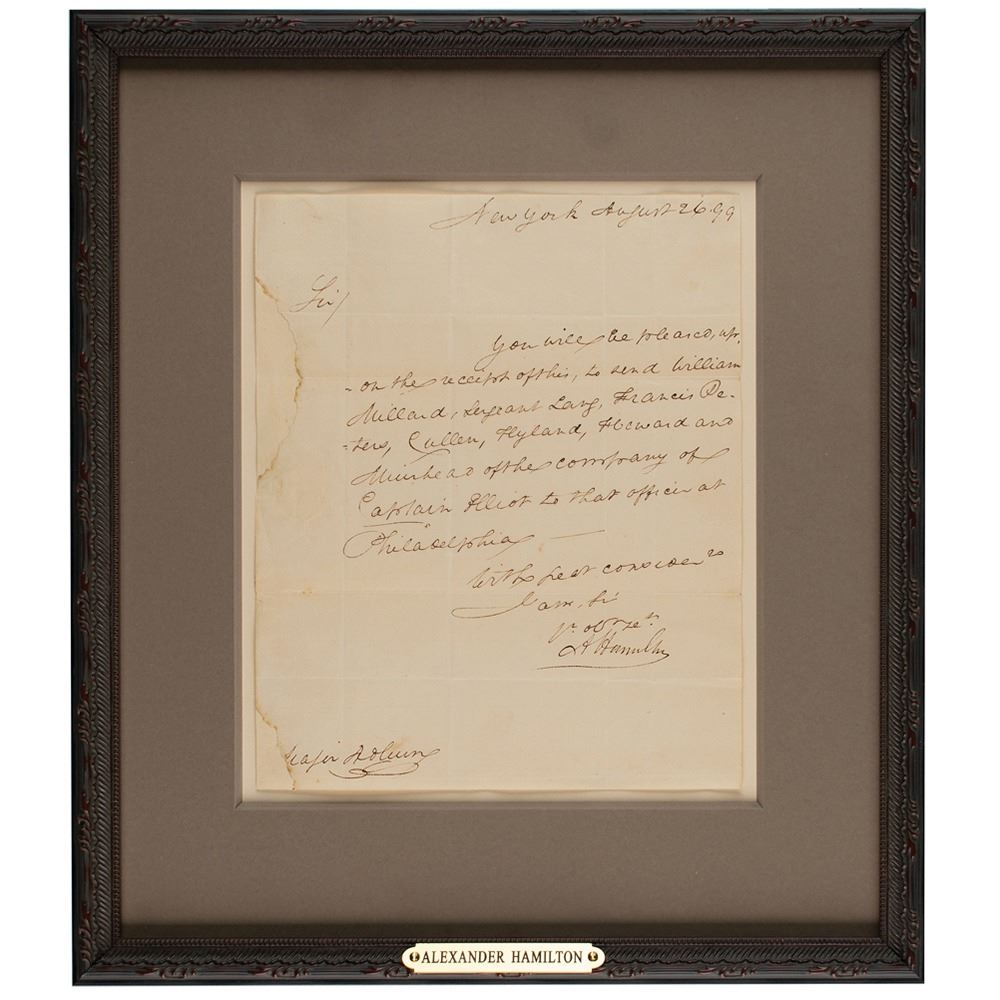 New York August 26. 99
Sir/
You will be pleased, up-
-on the receipt of this, to send William
Millard, Sergeant Lang, Francis Pe-
-ters, Cullen, Hyland, Howard and
Muirhead of the company of
Captain Elliot to that officer at
Philadelphia —
With great consider^n
I am, Sir
Yr. Obt Set.
A Hamilton
Major Adlum
ALEXANDER HAMILTON